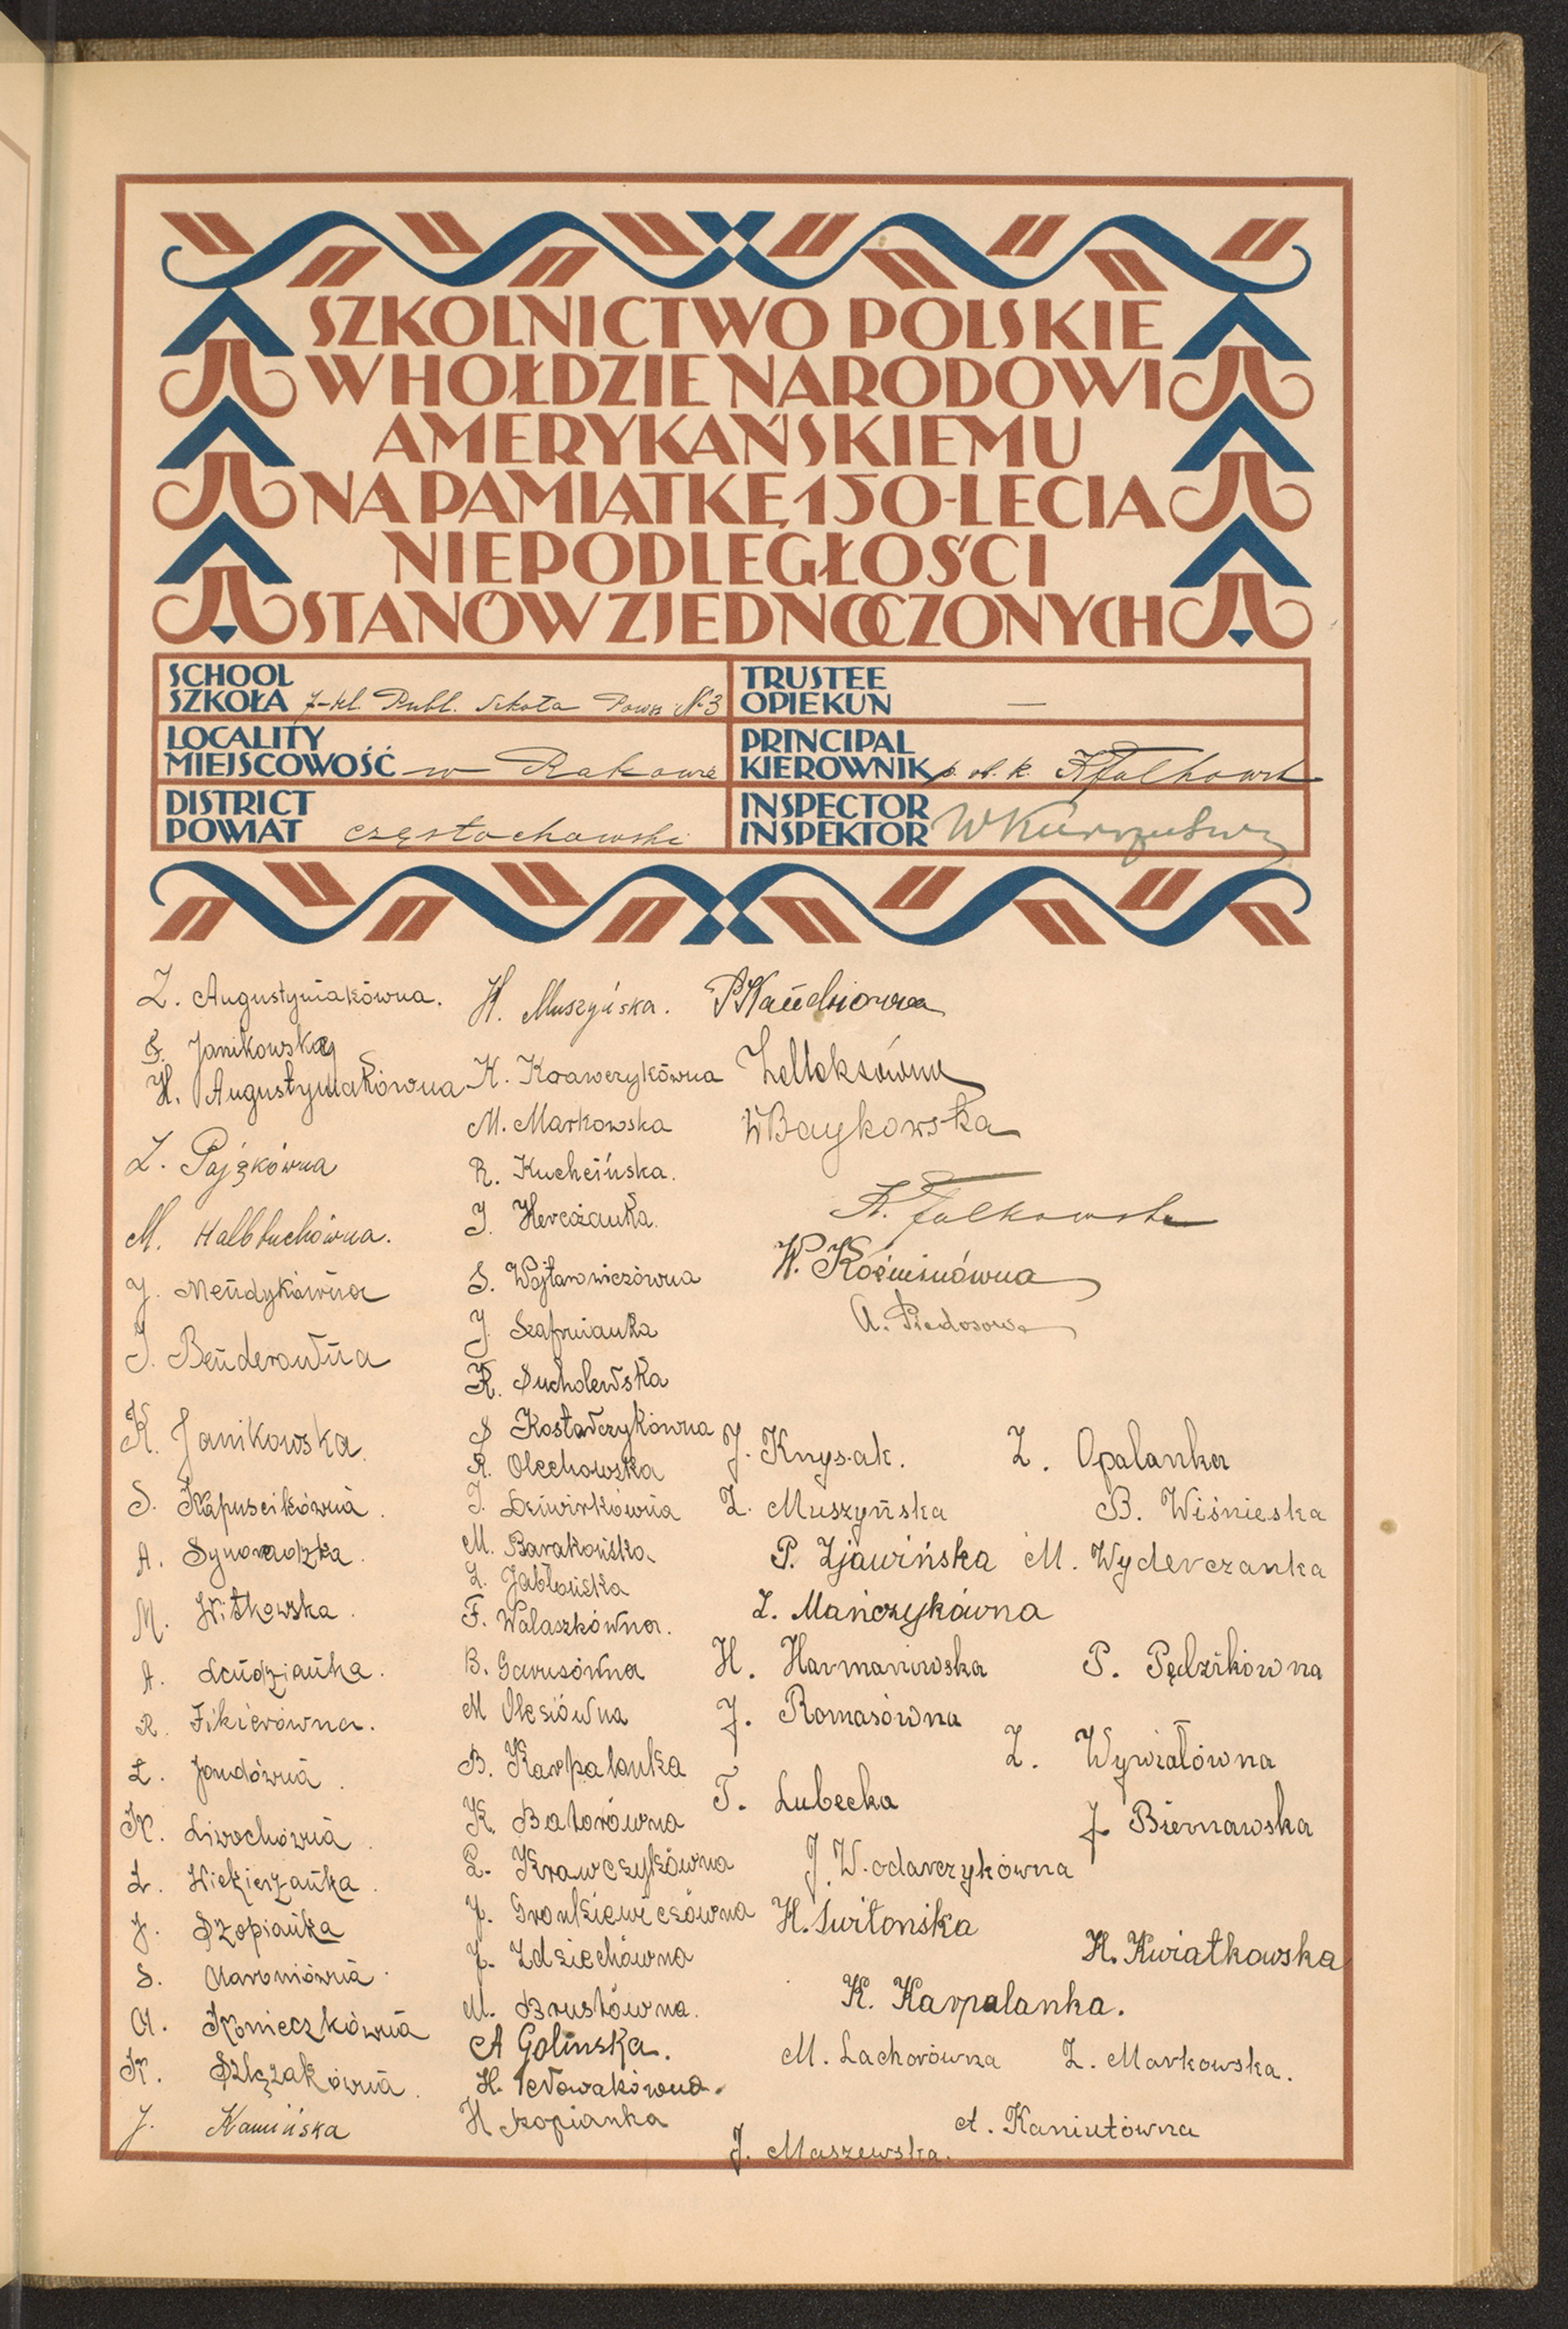 SZKOLNICTWO POLSKIE
W HOŁDZIE NARODOWI
AMERYKAŃSKIEMU
NA PAMIĄTKĘ 150-LECIA
NIEPODLEGŁOŚCI
STANÓW ZJEDNOCZONYCH
SCHOOL
SZKOŁA 7-kl. Publ. Szkoła Powsz. № 3
TRUSTEE
OPIEKUN —
LOCALITY
MIEJSCOWOŚĆ w Rakowie
PRINCIPAL
KIEROWNIK p. ob. k. Falkowska
DISTRICT
POWIAT częstochowski
INSPECTOR
INSPEKTOR
Z. Augustyniakówna.
S. Janikowska
H. Augustyniakówna
Z. Pajękówna
M.
J. Mendykówna
J. Benderówna
K. Janikowska
S. Kapuscikówna
A. Synoradzka
M. Witkowska
A.
R. Fikierówna.
L. Jondówna
K.
L.
J. Szopianka
S.
A. Konieczkówna
K. Szlęzakówna
J. Kamińska
H. Muszyńska.
K. Krawczykówna
M. Markowska
R. Kucheińska.
J.
S. Wojtarowiczówna
J. Szafrnianka
K. Sucholewska
S Kostarczykówna
R. Olechowska
J.
M. Barakońska
Z. Jabłońska
F. Walaszkówna.
B. Garusówna
M Olesiówna
B. Karpalanka
K. Batorówna
L. Krawczykówna
J. Gronkiewiczówna
J. Zdziechówna
M. Brustówna.
A Golinska.
H. Nowakówna.
H Szopianka
W Baykowska
K. Falkowska
W. Koźminówna
A. Piedosowa
J. Knysak.
Z. Muszyńska
P. Zjawińska
Z. Mańczykówna
H. Harmanowska
J. Romasówna
T. Lubecka
J. Wodarczykówna
H. Switonska
K. Karpalanka.
M. Lachorówna
J. Maszewska.
Z. Opalanka
B. Wiśnieska
M. Wyderczanka
P. Pędzikówna
Z. Wywiałówna
J. Biernawska
H. Kwiatkowska
Z. Markowska.
A. Kaniutówna